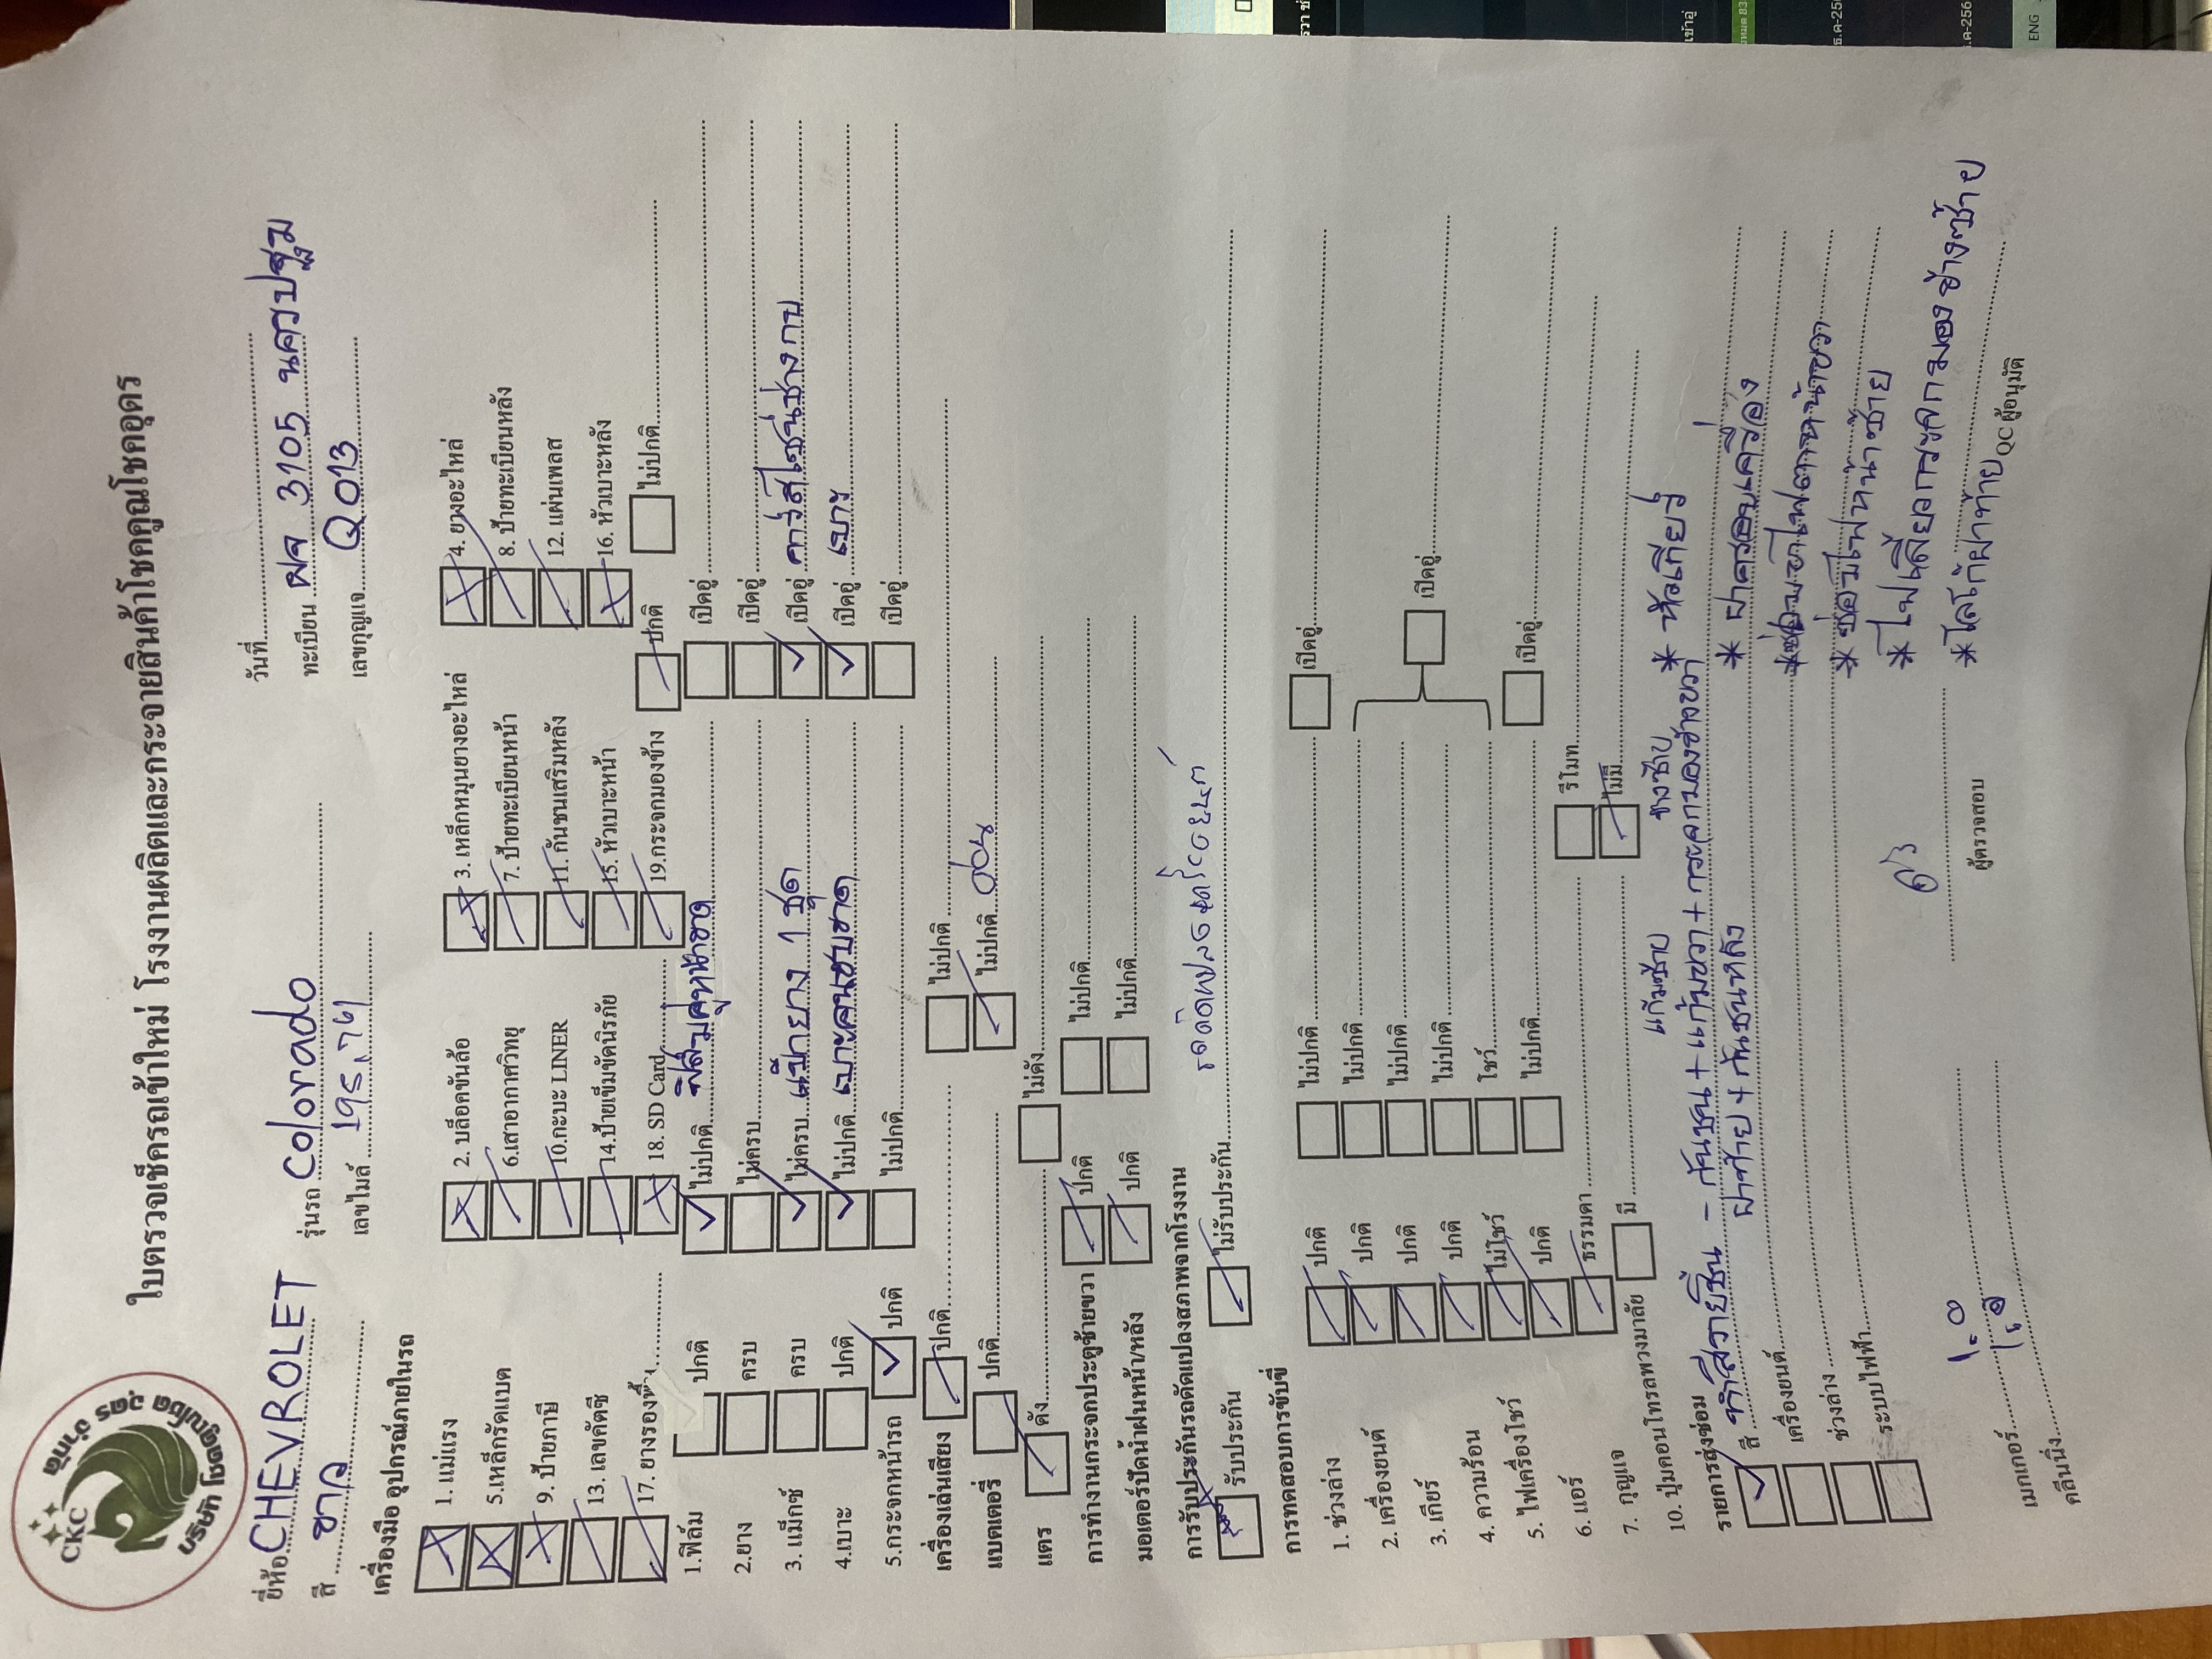 CKC
บริษัท โชคคูณโชค อุดร จำกัด
ใบตรวจเช็ครถเข้าใหม่ โรงงานผลิตและกระจายสินค้าโชคคูณโชคอุดร
วันที่
ยี่ห้อ CHEVROLET รุ่นรถ Colorado ทะเบียน ผจ 3105 นครปฐม
สี ขาว เลขไมล์ 195,761 เลขกุญแจ Q013
เครื่องมือ อุปกรณ์ภายในรถ
1. แม่แรง 2. บล็อคขันล้อ 3. เหล็กหมุนยางอะไหล่ 4. ยางอะไหล่
5.เหล็กรัดแบต 6.เสาอากาศวิทยุ 7. ป้ายทะเบียนหน้า 8. ป้ายทะเบียนหลัง
9. ป้ายภาษี 10.กะบะ LINER 11. กันชนเสริมหลัง 12. แผ่นเพลส
13. เลขคัตซี 14.ป้ายเข็มขัดนิรภัย 15. หัวเบาะหน้า 16. หัวเบาะหลัง
17. ยางรองพื้น 18. SD Card 19.กระจกมองข้าง ปกติ ไม่ปกติ
1.ฟิล์ม ปกติ ไม่ปกติ ฟิล์มคู่หน้าขาด เปิดอู่
2.ยาง ครบ ไม่ครบ เปิดอู่
3. แม็กซ์ ครบ ไม่ครบ แป๊ะยาง 1 ชุด เปิดอู่
4.เบาะ ปกติ ไม่ปกติ เบาะคนขับขาด เปิดอู่ เบาะ
5.กระจกหน้ารถ ปกติ ไม่ปกติ เปิดอู่
เครื่องเล่นเสียง ปกติ ไม่ปกติ
แบตเตอรี่ ปกติ ไม่ปกติ อ่อน
แตร ดัง ไม่ดัง
การทำงานกระจกประตูซ้ายขวา ปกติ ไม่ปกติ
มอเตอร์ปัดน้ำฝนหน้า/หลัง ปกติ ไม่ปกติ
การรับประกันรถดัดแปลงสภาพจากโรงงาน
รับประกัน ไม่รับประกัน
การทดสอบการขับขี่
1. ช่วงล่าง ปกติ ไม่ปกติ เปิดอู่
2. เครื่องยนต์ ปกติ ไม่ปกติ
3. เกียร์ ปกติ ไม่ปกติ เปิดอู่
4. ความร้อน ปกติ ไม่ปกติ
5. ไฟเครื่องโชว์ ไม่โชว์ โชว์
6. แอร์ ปกติ ไม่ปกติ เปิดอู่
7. กุญแจ ธรรมดา รีโมท
10. ปุ่มคอนโทรลพวงมาลัย มี ไม่มี
รายการส่งซ่อม แก้มซ้าย ข้างซ้าย * หัวเกียร์
สี ทำสีรายชิ้น - กันชน + แก้มขวา + กระจกมองข้างขวา
ฝาท้าย + กันชนหลัง * ฝาครอบเครื่อง
เครื่องยนต์
ช่วงล่าง * ซ่อมไฟหน้าซ้าย
ระบบไฟฟ้า * ไฟเลี้ยวกระจกมองข้างซ้าย
* โลโก้ฝาท้าย
เมกเกอร์ ผู้ตรวจสอบ QC ผู้อนุมัติ
คลีนนิ่ง